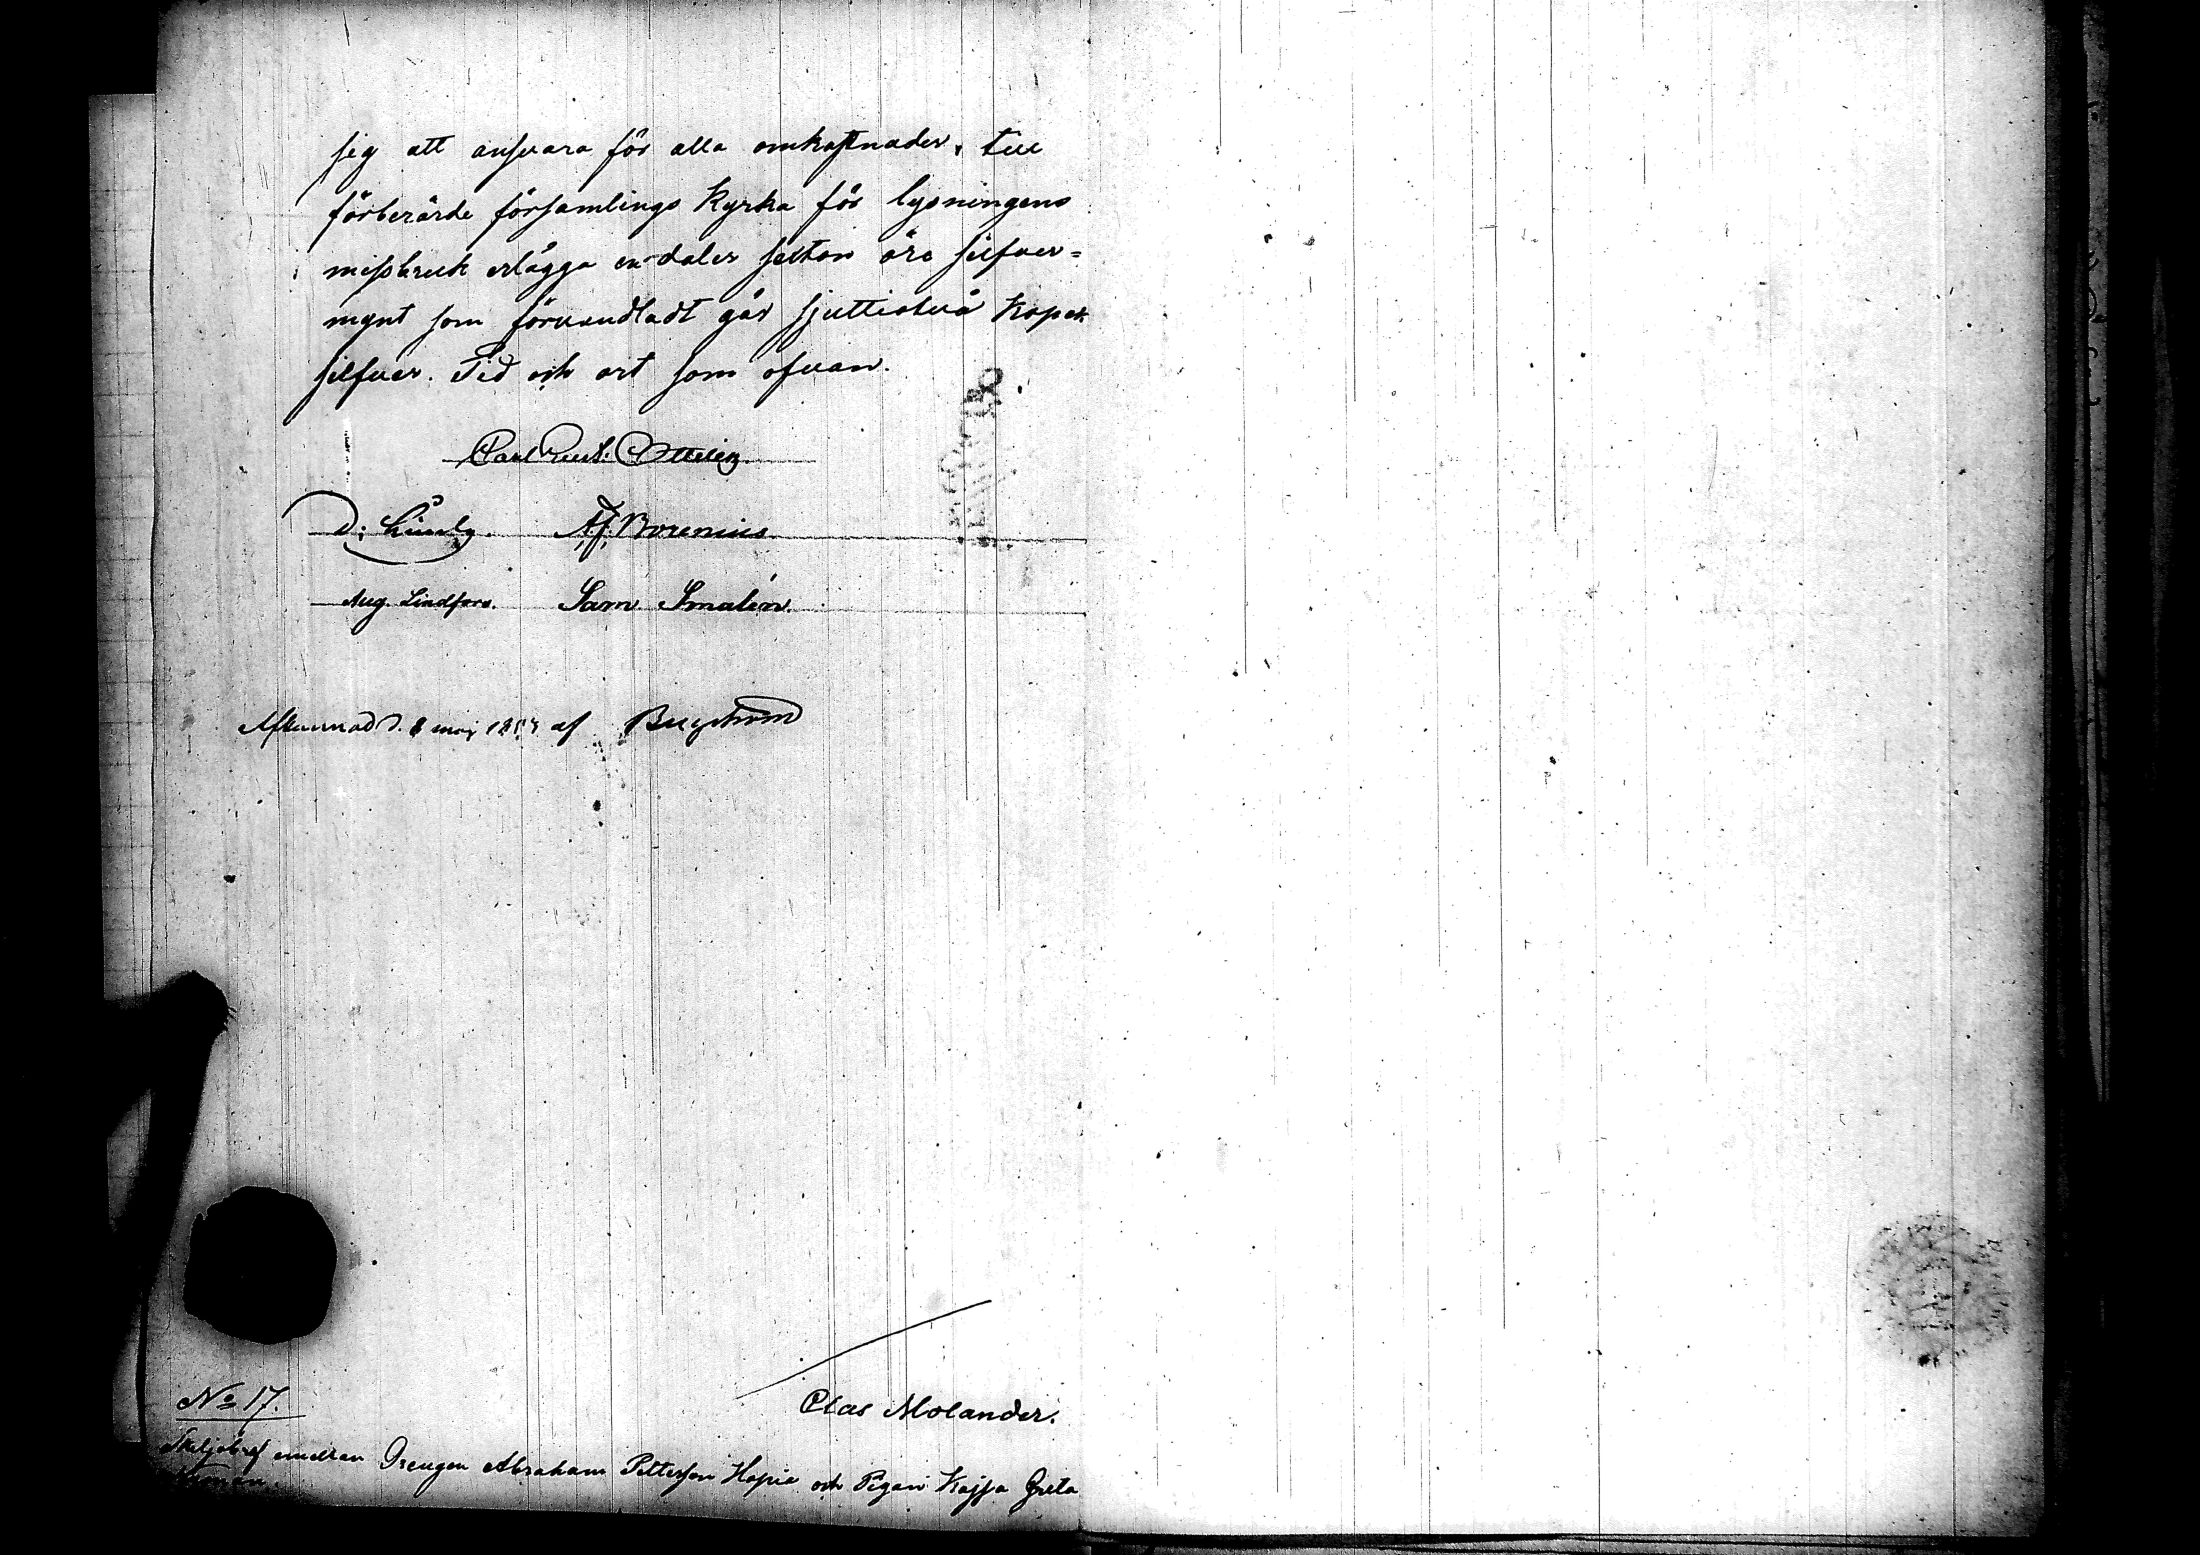 sig att ansvara för alla omkostnader, till
förberörde församlings Kyrka för lysningens
missbruk erlägga en daler sexton öre silfver=
mynt som förvandladt gör sjuttiotvå Kopek
silfver. Tid och ort som ofvan.
Carl Gust: Ottelin
A. F. Borenius
Aug. Lindfors. Sam Smalén.
d. 8 maj af Bergström
Clas Molander.
No 17.
Skiljobref emellan Drengen Abraham Pettersson Hopia och Pigan Kajsa Greta